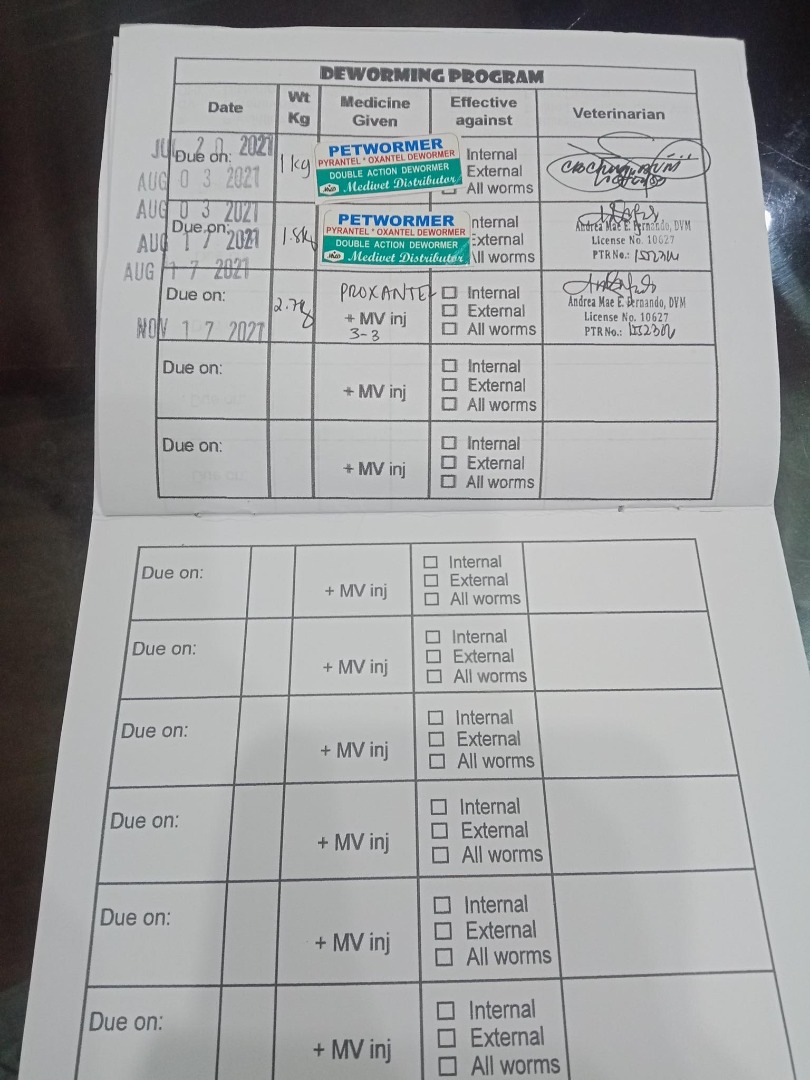 DEWORMING PROGRAM
Date Wt Kg Medicine Given Effective against Veterinarian
JUL 20 2021
Due on:
AUG 03 2021
1 kg
PETWORMER
PYRANTEL * OXANTEL DEWORMER
DOUBLE ACTION DEWORMER
Medivet Distributor
Internal
External
All worms
AUG 03 2021
Due on:
AUG 17 2021
1.8kg
PETWORMER
PYRANTEL * OXANTEL DEWORMER
DOUBLE ACTION DEWORMER
Medivet Distributor
Internal
External
All worms
Andrea Mae E. Fernando, DVM
License No. 10627
PTR No.:
AUG 17 2021
Due on:
NOV 17 2021
2.7kg
PROXANTEL
+ MV inj
3-3
☐ Internal
☐ External
☐ All worms
Andrea Mae E. Fernando, DVM
License No. 10627
PTR No.:
Due on:
+ MV inj
☐ Internal
☐ External
☐ All worms
Due on:
+ MV inj
☐ Internal
☐ External
☐ All worms
Due on:
+ MV inj
☐ Internal
☐ External
☐ All worms
Due on:
+ MV inj
☐ Internal
☐ External
☐ All worms
Due on:
+ MV inj
☐ Internal
☐ External
☐ All worms
Due on:
+ MV inj
☐ Internal
☐ External
☐ All worms
Due on:
+ MV inj
☐ Internal
☐ External
☐ All worms
Due on:
+ MV inj
☐ Internal
☐ External
☐ All worms